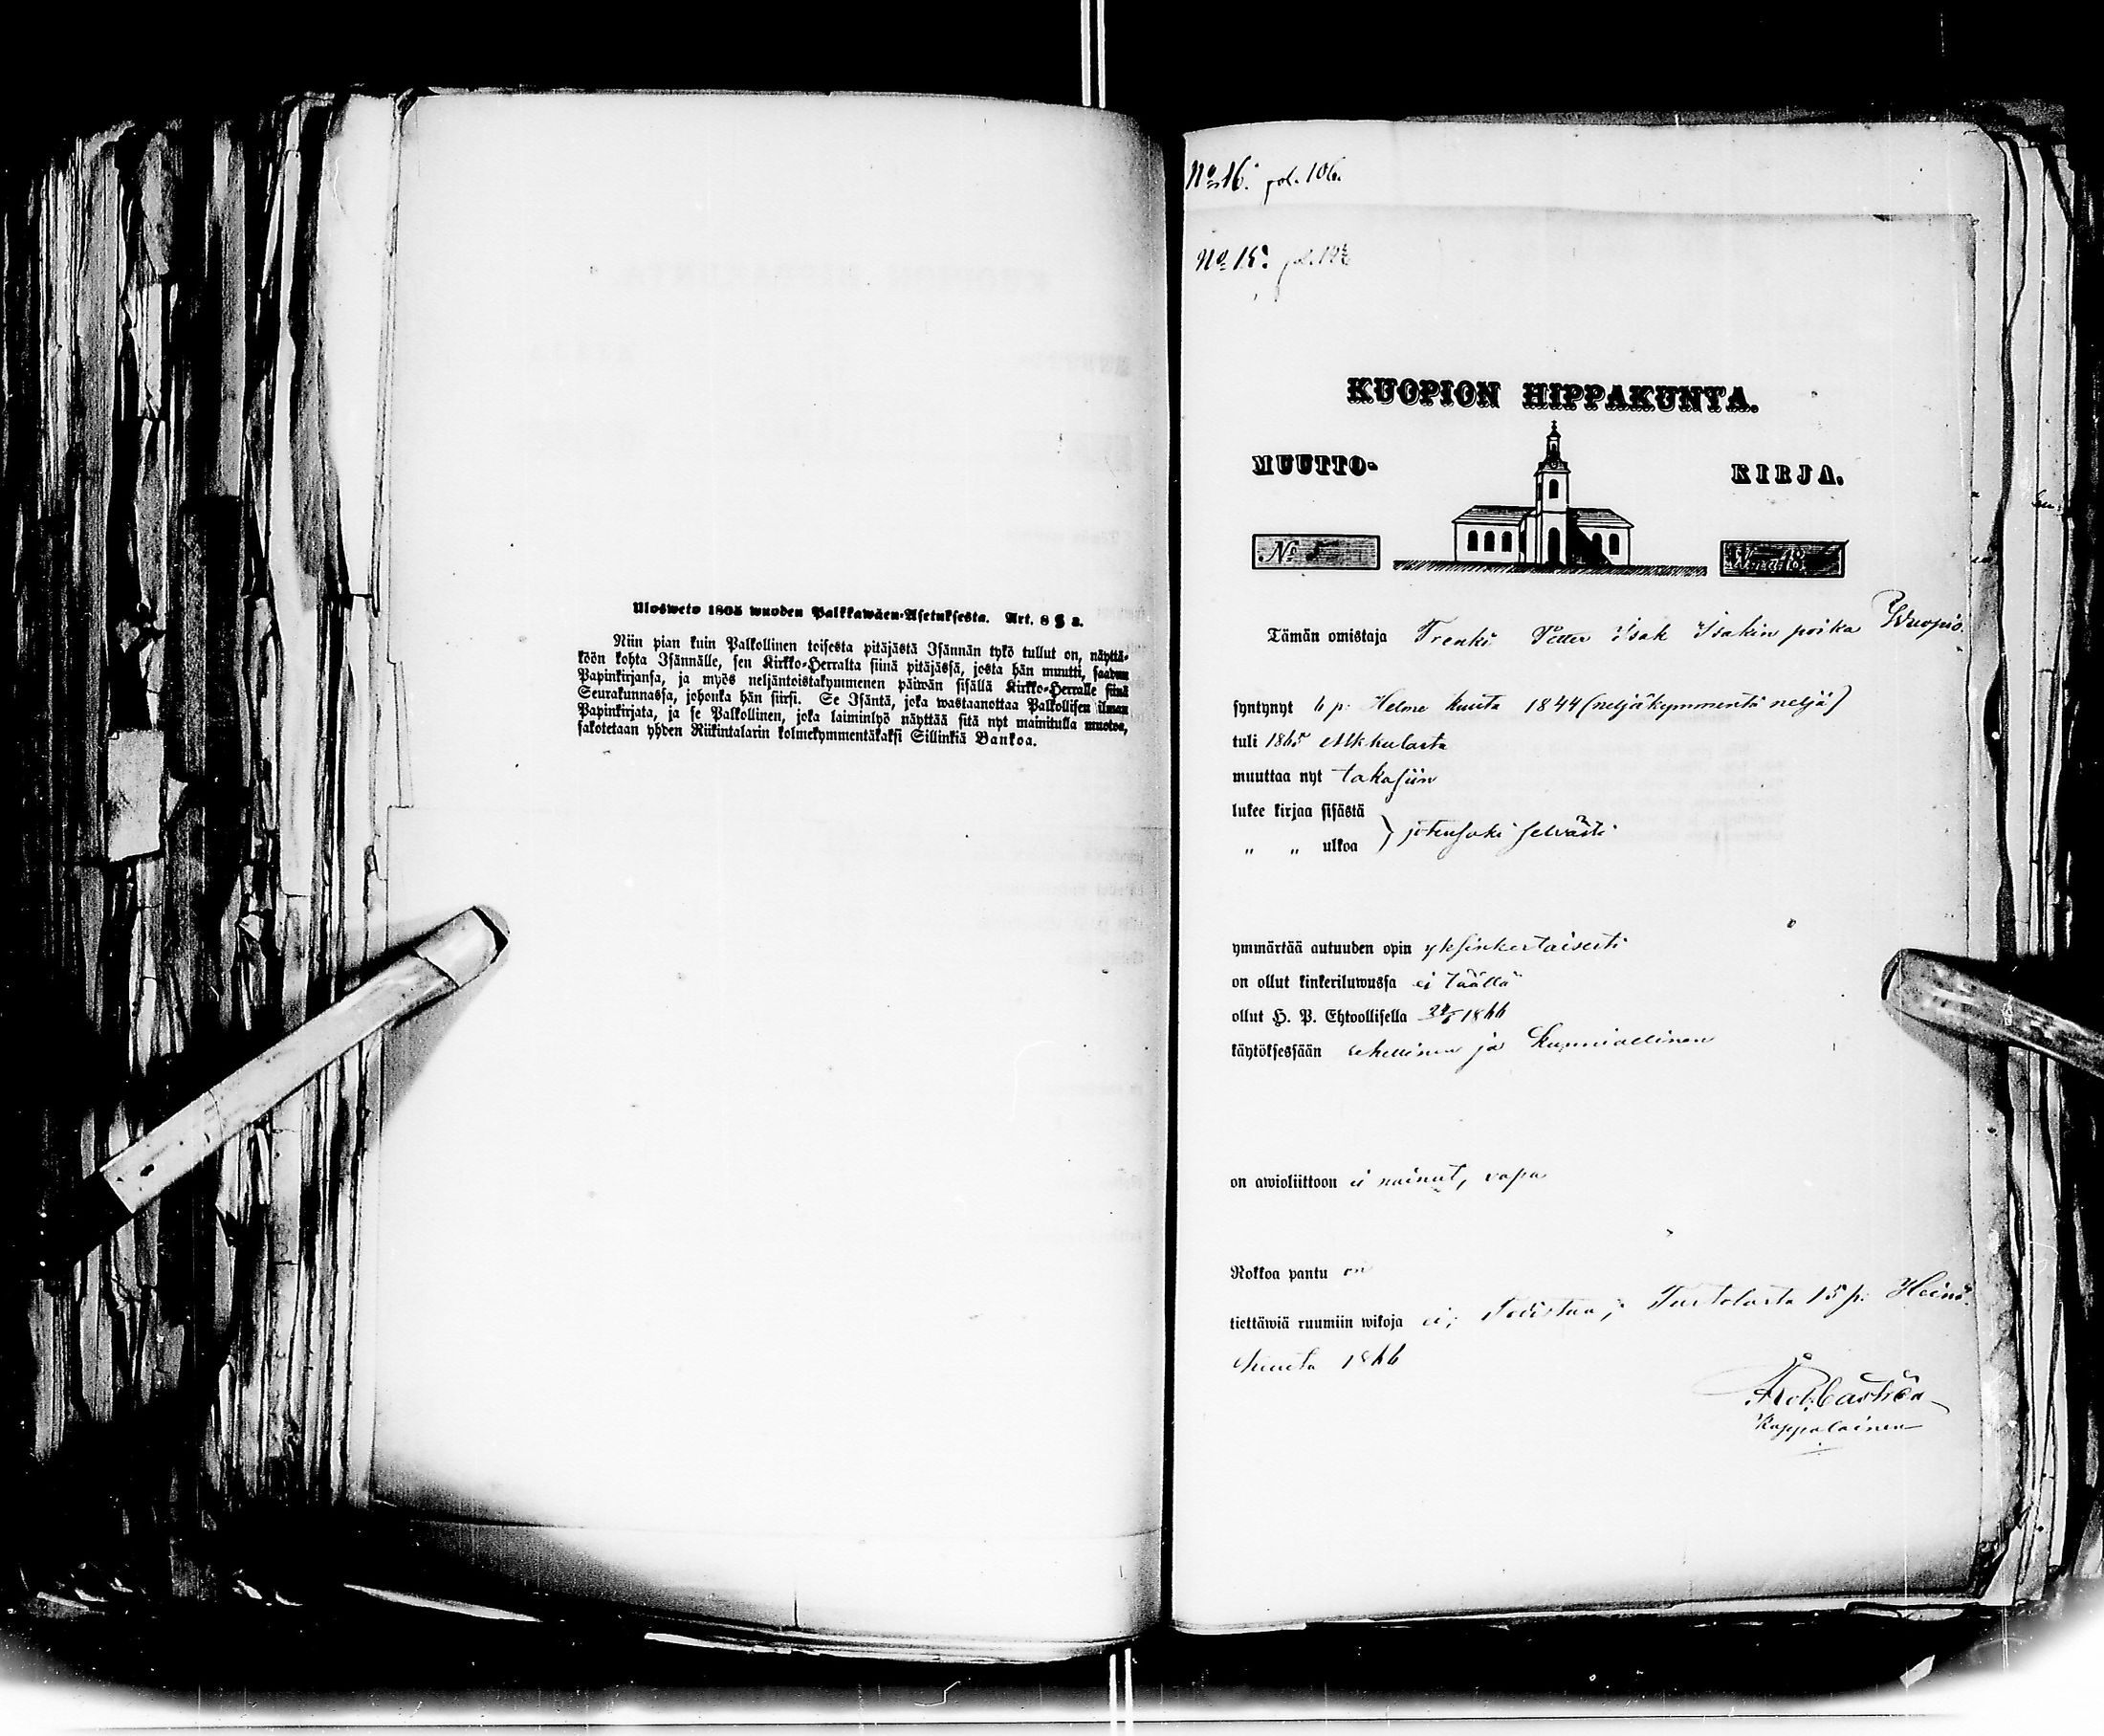 Ulosweto 1805 wuoden Palkkawäen-Asetuksesta. Art. 8 § 3.
Niin pian kuin Palkollinen toisesta pitäjästä Isännän tykö tullut on, näyttä-
köön kohta Isännälle, sen Kirkko-Herralta siinä pitäjässä, josta hän muutti, saadun
Papinkirjansa, ja myös neljäntoistakymmenen päiwän sisällä Kirkko-Herralle siinä
Seurakunnassa, johonka hän siirsi. Se Isäntä, joka wastaanottaa Palkollisen ilman
Papinkirjata, ja se Palkollinen, joka laiminlyö näyttää sitä nyt mainitulla muotoa,
sakotetaan yhden Riikintalarin kolmekymmentäkaksi Sillinkiä Bankoa.
No 16. pol. 106.
No 15.
KUOPION HIPPAKUNTA.
MUUTTO- KIRJA.
No 5 W:na 18
Tämän omistaja Trenki Petter Isak Isakin poika
syntynyt 6 p. Helme kuuta 1844 (neljäkymmentä neljä)
tuli 1865 Alkkulasta
muuttaa nyt takasiin
lukee kirjaa sisästä
" " ulkoa } jotensaki selvästi
ymmärtää autuuden opin yksinkertaisesti
on ollut kinkeriluwussa ei täällä
ollut H. P. Ehtoollisella 24/6 1866
käytöksessään rehellinen ja kunniallinen
on awioliittoon ei nainut, vapa
Rokkoa pantu on
tiettäwiä ruumiin wikoja ei; todistaa; Turtolasta 15 p. Heinä
kuuta 1866
Kappalainen